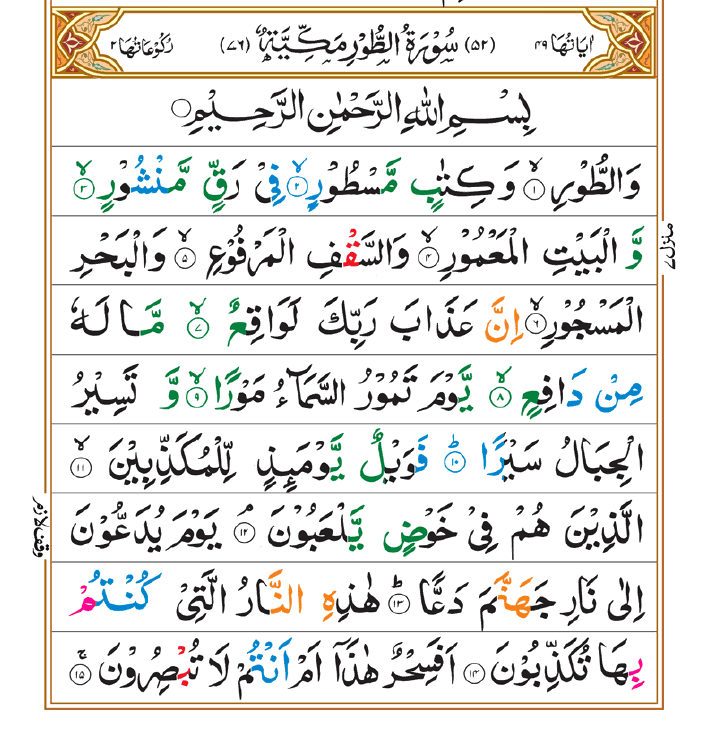 اٰیَاتُهَا ۴۹ (۵۲) سُوْرَةُ الطُّوْرِ مَكِّیَّةٌ (۷۶) رُكُوْعَاتُهَا ۲
بِسْمِ اللّٰهِ الرَّحْمٰنِ الرَّحِیْمِ
وَالطُّوْرِ ۙ﴿۱﴾ وَ كِتٰبٍ مَّسْطُوْرٍ ۙ﴿۲﴾ فِیْ رَقٍّ مَّنْشُوْرٍ ۙ﴿۳﴾
وَّ الْبَیْتِ الْمَعْمُوْرِ ۙ﴿۴﴾ وَالسَّقْفِ الْمَرْفُوْعِ ۙ﴿۵﴾ وَالْبَحْرِ
منزل ۷
الْمَسْجُوْرِ ۙ﴿۶﴾ اِنَّ عَذَابَ رَبِّكَ لَوَاقِعٌ ۙ﴿۷﴾ مَّا لَهٗ
مِنْ دَافِعٍ ۙ﴿۸﴾ یَّوْمَ تَمُوْرُ السَّمَآءُ مَوْرًا ۙ﴿۹﴾ وَّ تَسِیْرُ
الْجِبَالُ سَیْرًا ؕ﴿۱۰﴾ فَوَیْلٌ یَّوْمَىِٕذٍ لِّلْمُكَذِّبِیْنَ ۙ﴿۱۱﴾
الَّذِیْنَ هُمْ فِیْ خَوْضٍ یَّلْعَبُوْنَ ۘ﴿۱۲﴾ یَوْمَ یُدَعُّوْنَ
وقف لازم
اِلٰی نَارِ جَهَنَّمَ دَعًّا ؕ﴿۱۳﴾ هٰذِهِ النَّارُ الَّتِیْ كُنْتُمْ
بِهَا تُكَذِّبُوْنَ ﴿۱۴﴾ اَفَسِحْرٌ هٰذَاۤ اَمْ اَنْتُمْ لَا تُبْصِرُوْنَ ۚ﴿۱۵﴾